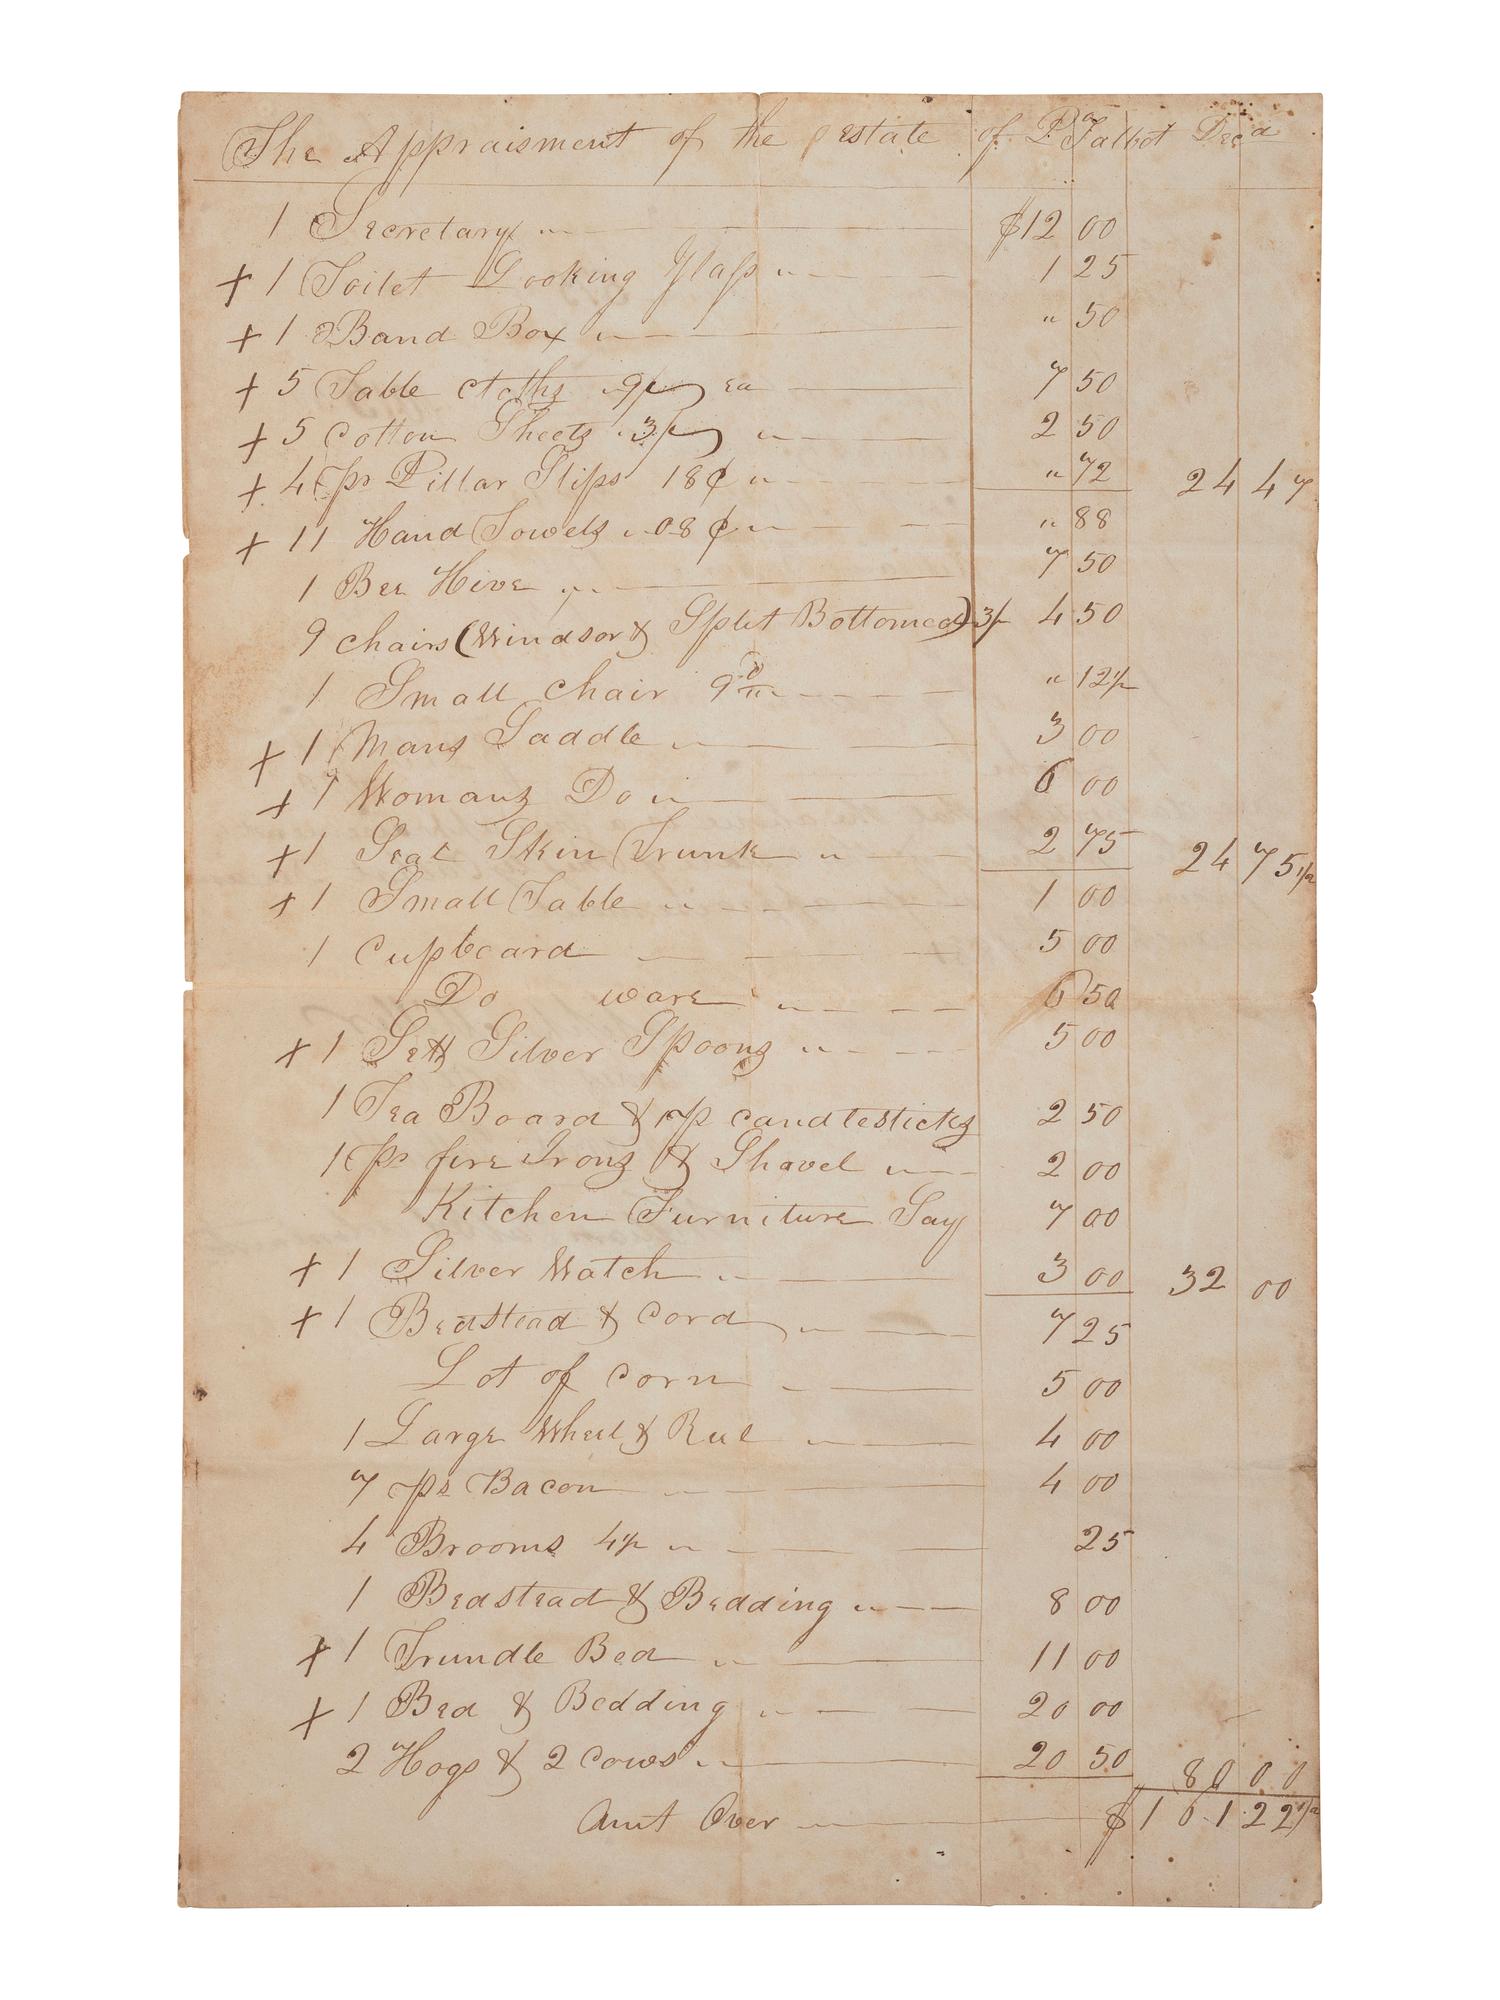 The Appraisment of the estate of P Talbot Decd
1 Secretary $12 00
+ 1 Toilet Looking Glass " 1 25
+ 1 Band Box " " 50
+ 5 Table cloths 9/ ea 7 50
+ 5 Cotton Sheets 3/ " 2 50
+ 4 pr Pillar Slips 18¢ " " 72 24 47
+ 11 Hand Towels 08¢ " " 88
1 Bee Hive " 7 50
9 chairs (Windsor & Split Bottomed) 3/ 4 50
1 Small chair 9d " 12½
+ 1 Mans Saddle " 3 00
+ 1 Womans Do " 6 00
+ 1 Seal Skin Trunk " 2 75 24 75½
+ 1 Small Table " 1 00
1 Cupboard 5 00
Do ware " 6 50
+ 1 Sett Silver Spoons " 5 00
1 Tea Board & 1 p candlesticks 2 50
1 pr fire Irons & Shovel " 2 00
Kitchen Furniture Say 7 00
+ 1 Silver Watch " 3 00 32 00
+ 1 Bedstead & Cord " 7 25
Lot of corn " 5 00
1 Large Wheel & Reel " 4 00
7 ps Bacon 4 00
4 Brooms 4/ " 25
1 Bedstead & Bedding " 8 00
+ 1 Trundle Bed " 11 00
+ 1 Bed & Bedding " 20 00
2 Hogs & 2 cows " 20 50 80 00
Amt Over $161 22½